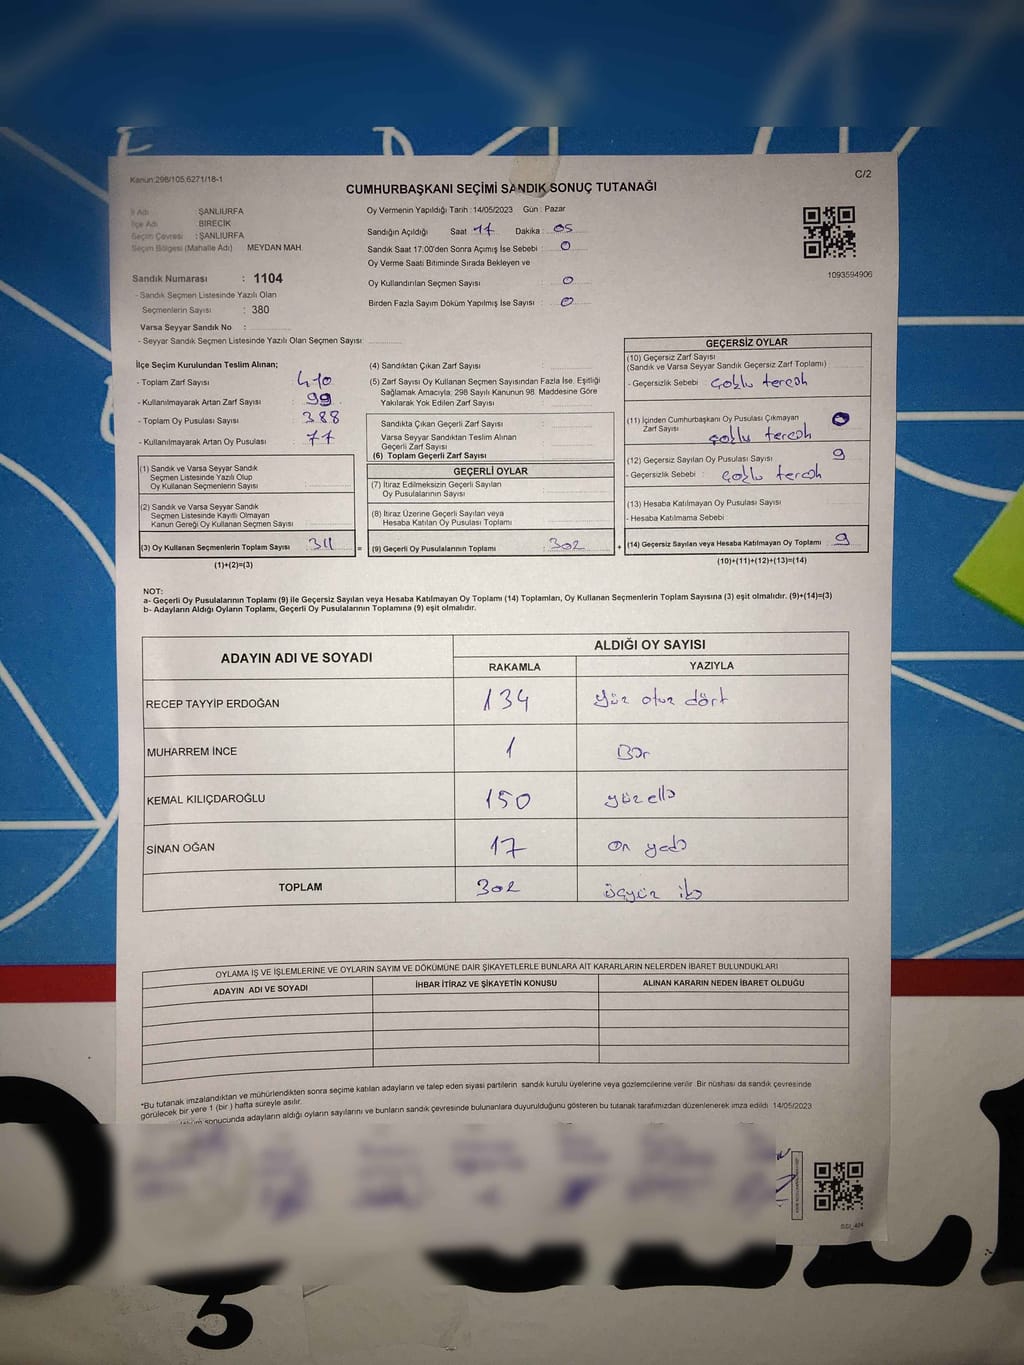 Kanun:298/105;6271/18-1
C/2
CUMHURBAŞKANI SEÇİMİ SANDIK SONUÇ TUTANAĞI
İl Adı : ŞANLIURFA
İlçe Adı : BİRECİK
Seçim Çevresi : ŞANLIURFA
Seçim Bölgesi (Mahalle Adı) MEYDAN MAH.
Sandık Numarası : 1104
- Sandık Seçmen Listesinde Yazılı Olan
Seçmenlerin Sayısı : 380
Varsa Seyyar Sandık No :
- Seyyar Sandık Seçmen Listesinde Yazılı Olan Seçmen Sayısı
Oy Vermenin Yapıldığı Tarih : 14/05/2023 Gün : Pazar
Sandığın Açıldığı Saat 17 Dakika : 05
Sandık Saat 17:00'den Sonra Açımış İse Sebebi : 0
Oy Verme Saati Bitiminde Sırada Bekleyen ve
Oy Kullandırılan Seçmen Sayısı : 0
Birden Fazla Sayım Döküm Yapılmış İse Sayısı : 0
1093594906
İlçe Seçim Kurulundan Teslim Alınan;
- Toplam Zarf Sayısı 410
- Kullanılmayarak Artan Zarf Sayısı 99
- Toplam Oy Pusulası Sayısı 388
- Kullanılmayarak Artan Oy Pusulası 77
(1) Sandık ve Varsa Seyyar Sandık
Seçmen Listesinde Yazılı Olup
Oy Kullanan Seçmenlerin Sayısı
(2) Sandık ve Varsa Seyyar Sandık
Seçmen Listesinde Kayıtlı Olmayan
Kanun Gereği Oy Kullanan Seçmen Sayısı
(3) Oy Kullanan Seçmenlerin Toplam Sayısı 311 =
(1)+(2)=(3)
(4) Sandıktan Çıkan Zarf Sayısı :
(5) Zarf Sayısı Oy Kullanan Seçmen Sayısından Fazla İse, Eşitliği
Sağlamak Amacıyla; 298 Sayılı Kanunun 98. Maddesine Göre
Yakılarak Yok Edilen Zarf Sayısı
Sandıkta Çıkan Geçerli Zarf Sayısı
Varsa Seyyar Sandıktan Teslim Alınan
Geçerli Zarf Sayısı
(6) Toplam Geçerli Zarf Sayısı
GEÇERLİ OYLAR
(7) İtiraz Edilmeksizin Geçerli Sayılan
Oy Pusulalarının Sayısı
(8) İtiraz Üzerine Geçerli Sayılan veya
Hesaba Katılan Oy Pusulası Toplamı
(9) Geçerli Oy Pusulalarının Toplamı 302 +
GEÇERSİZ OYLAR
(10) Geçersiz Zarf Sayısı
(Sandık ve Varsa Seyyar Sandık Geçersiz Zarf Toplamı)
- Geçersizlik Sebebi :
(11) İçinden Cumhurbaşkanı Oy Pusulası Çıkmayan
Zarf Sayısı 0
(12) Geçersiz Sayılan Oy Pusulası Sayısı 9
- Geçersizlik Sebebi :
(13) Hesaba Katılmayan Oy Pusulası Sayısı
- Hesaba Katılmama Sebebi
(14) Geçersiz Sayılan veya Hesaba Katılmayan Oy Toplamı 9
(10)+(11)+(12)+(13)=(14)
NOT:
a- Geçerli Oy Pusulalarının Toplamı (9) ile Geçersiz Sayılan veya Hesaba Katılmayan Oy Toplamı (14) Toplamları, Oy Kullanan Seçmenlerin Toplam Sayısına (3) eşit olmalıdır. (9)+(14)=(3)
b- Adayların Aldığı Oyların Toplamı, Geçerli Oy Pusulalarının Toplamına (9) eşit olmalıdır.
ADAYIN ADI VE SOYADI ALDIĞI OY SAYISI
RAKAMLA YAZIYLA
RECEP TAYYİP ERDOĞAN 134 yüz otuz dört
MUHARREM İNCE 1 Bir
KEMAL KILIÇDAROĞLU 150 yüzelli
SİNAN OĞAN 17 on yedi
TOPLAM 302 üçyüz iki
OYLAMA İŞ VE İŞLEMLERİNE VE OYLARIN SAYIM VE DÖKÜMÜNE DAİR ŞİKAYETLERLE BUNLARA AİT KARARLARIN NELERDEN İBARET BULUNDUKLARI
ADAYIN ADI VE SOYADI İHBAR İTİRAZ VE ŞİKAYETİN KONUSU ALINAN KARARIN NEDEN İBARET OLDUĞU
*Bu tutanak imzalandıktan ve mühürlendikten sonra seçime katılan adayların ve talep eden siyasi partilerin sandık kurulu üyelerine veya gözlemcilerine verilir. Bir nüshası da sandık çevresinde
görülecek bir yere 1 (bir ) hafta süreyle asılır.
sonucunda adayların aldığı oyların sayılarını ve bunların sandık çevresinde bulunanlara duyurulduğunu gösteren bu tutanak tarafımızdan düzenlenerek imza edildi 14/05/2023
5